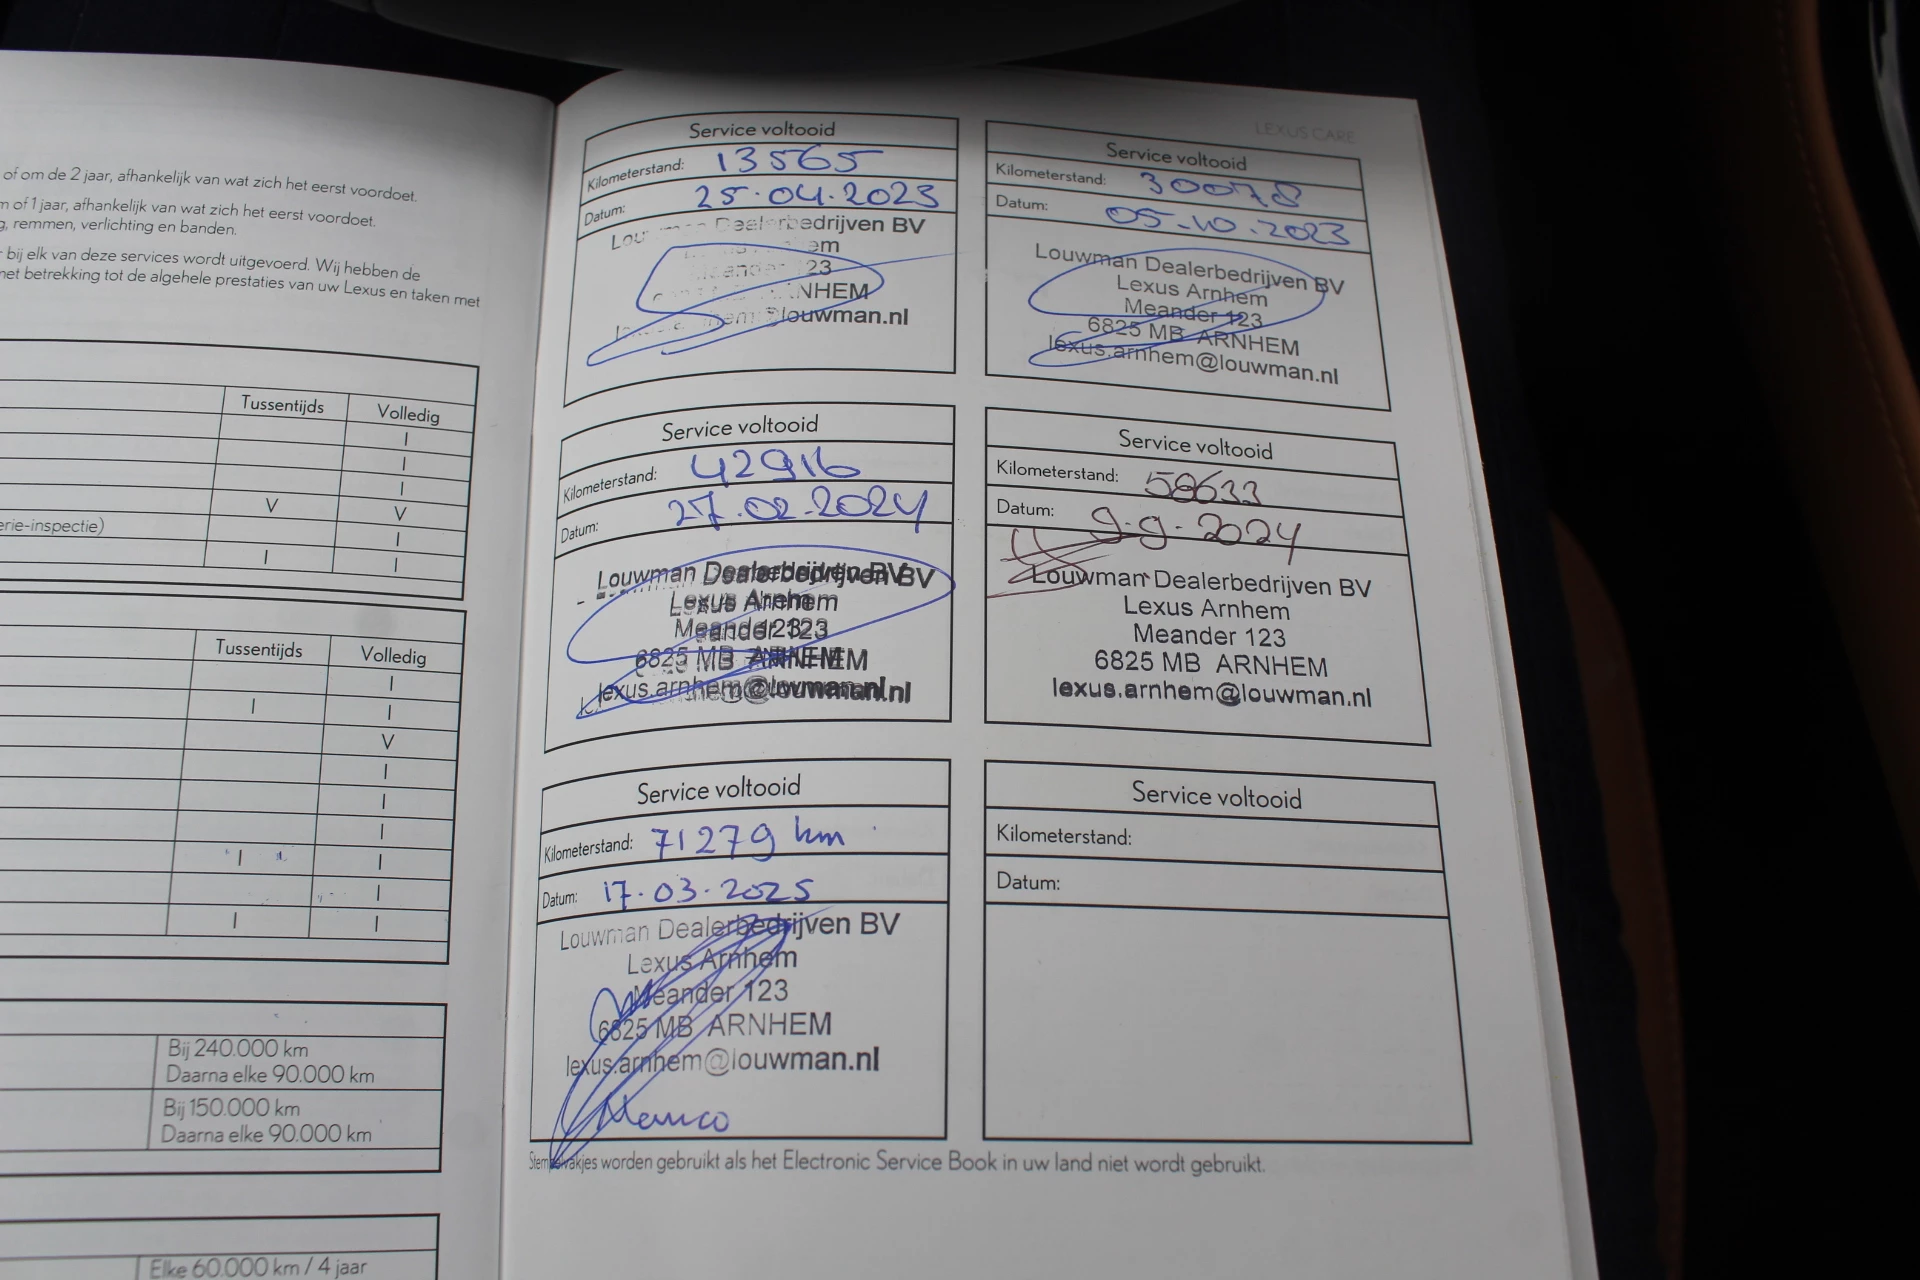 of om de 2 jaar, afhankelijk van wat zich het eerst voordoet.
m of 1 jaar, afhankelijk van wat zich het eerst voordoet.
g, remmen, verlichting en banden.
bij elk van deze services wordt uitgevoerd. Wij hebben de
met betrekking tot de algehele prestaties van uw Lexus en taken met
Tussentijds Volledig
I
I
I
V V
erie-inspectie) I
I I
Tussentijds Volledig
I
I I
V
I
I
I
I I
I
I I
Bij 240.000 km
Daarna elke 90.000 km
Bij 150.000 km
Daarna elke 90.000 km
Elke 60.000 km / 4 jaar
LEXUS CARE
Service voltooid
Kilometerstand: 13565
Datum: 25.04.2023
Dealerbedrijven BV
Meander 123
ARNHEM
@louwman.nl
Service voltooid
Kilometerstand: 30078
Datum: 05-10.2023
Louwman Dealerbedrijven BV
Lexus Arnhem
Meander 123
6825 MB ARNHEM
lexus.arnhem@louwman.nl
Service voltooid
Kilometerstand: 42916
Datum: 27.02.2024
Louwman Dealerbedrijven BV
Lexus Arnhem
Meander 123
6825 MB ARNHEM
lexus.arnhem@louwman.nl
Service voltooid
Kilometerstand: 58633
Datum: 9-9-2024
Louwman Dealerbedrijven BV
Lexus Arnhem
Meander 123
6825 MB ARNHEM
lexus.arnhem@louwman.nl
Service voltooid
Kilometerstand: 71279 km
Datum: 17.03.2025
Louwman Dealerbedrijven BV
Lexus Arnhem
Meander 123
6825 MB ARNHEM
lexus.arnhem@louwman.nl
Service voltooid
Kilometerstand:
Datum:
Stempelvakjes worden gebruikt als het Electronic Service Book in uw land niet wordt gebruikt.